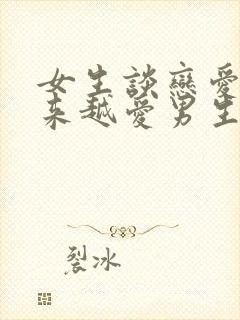 女生談戀愛
來越愛男生
裂冰